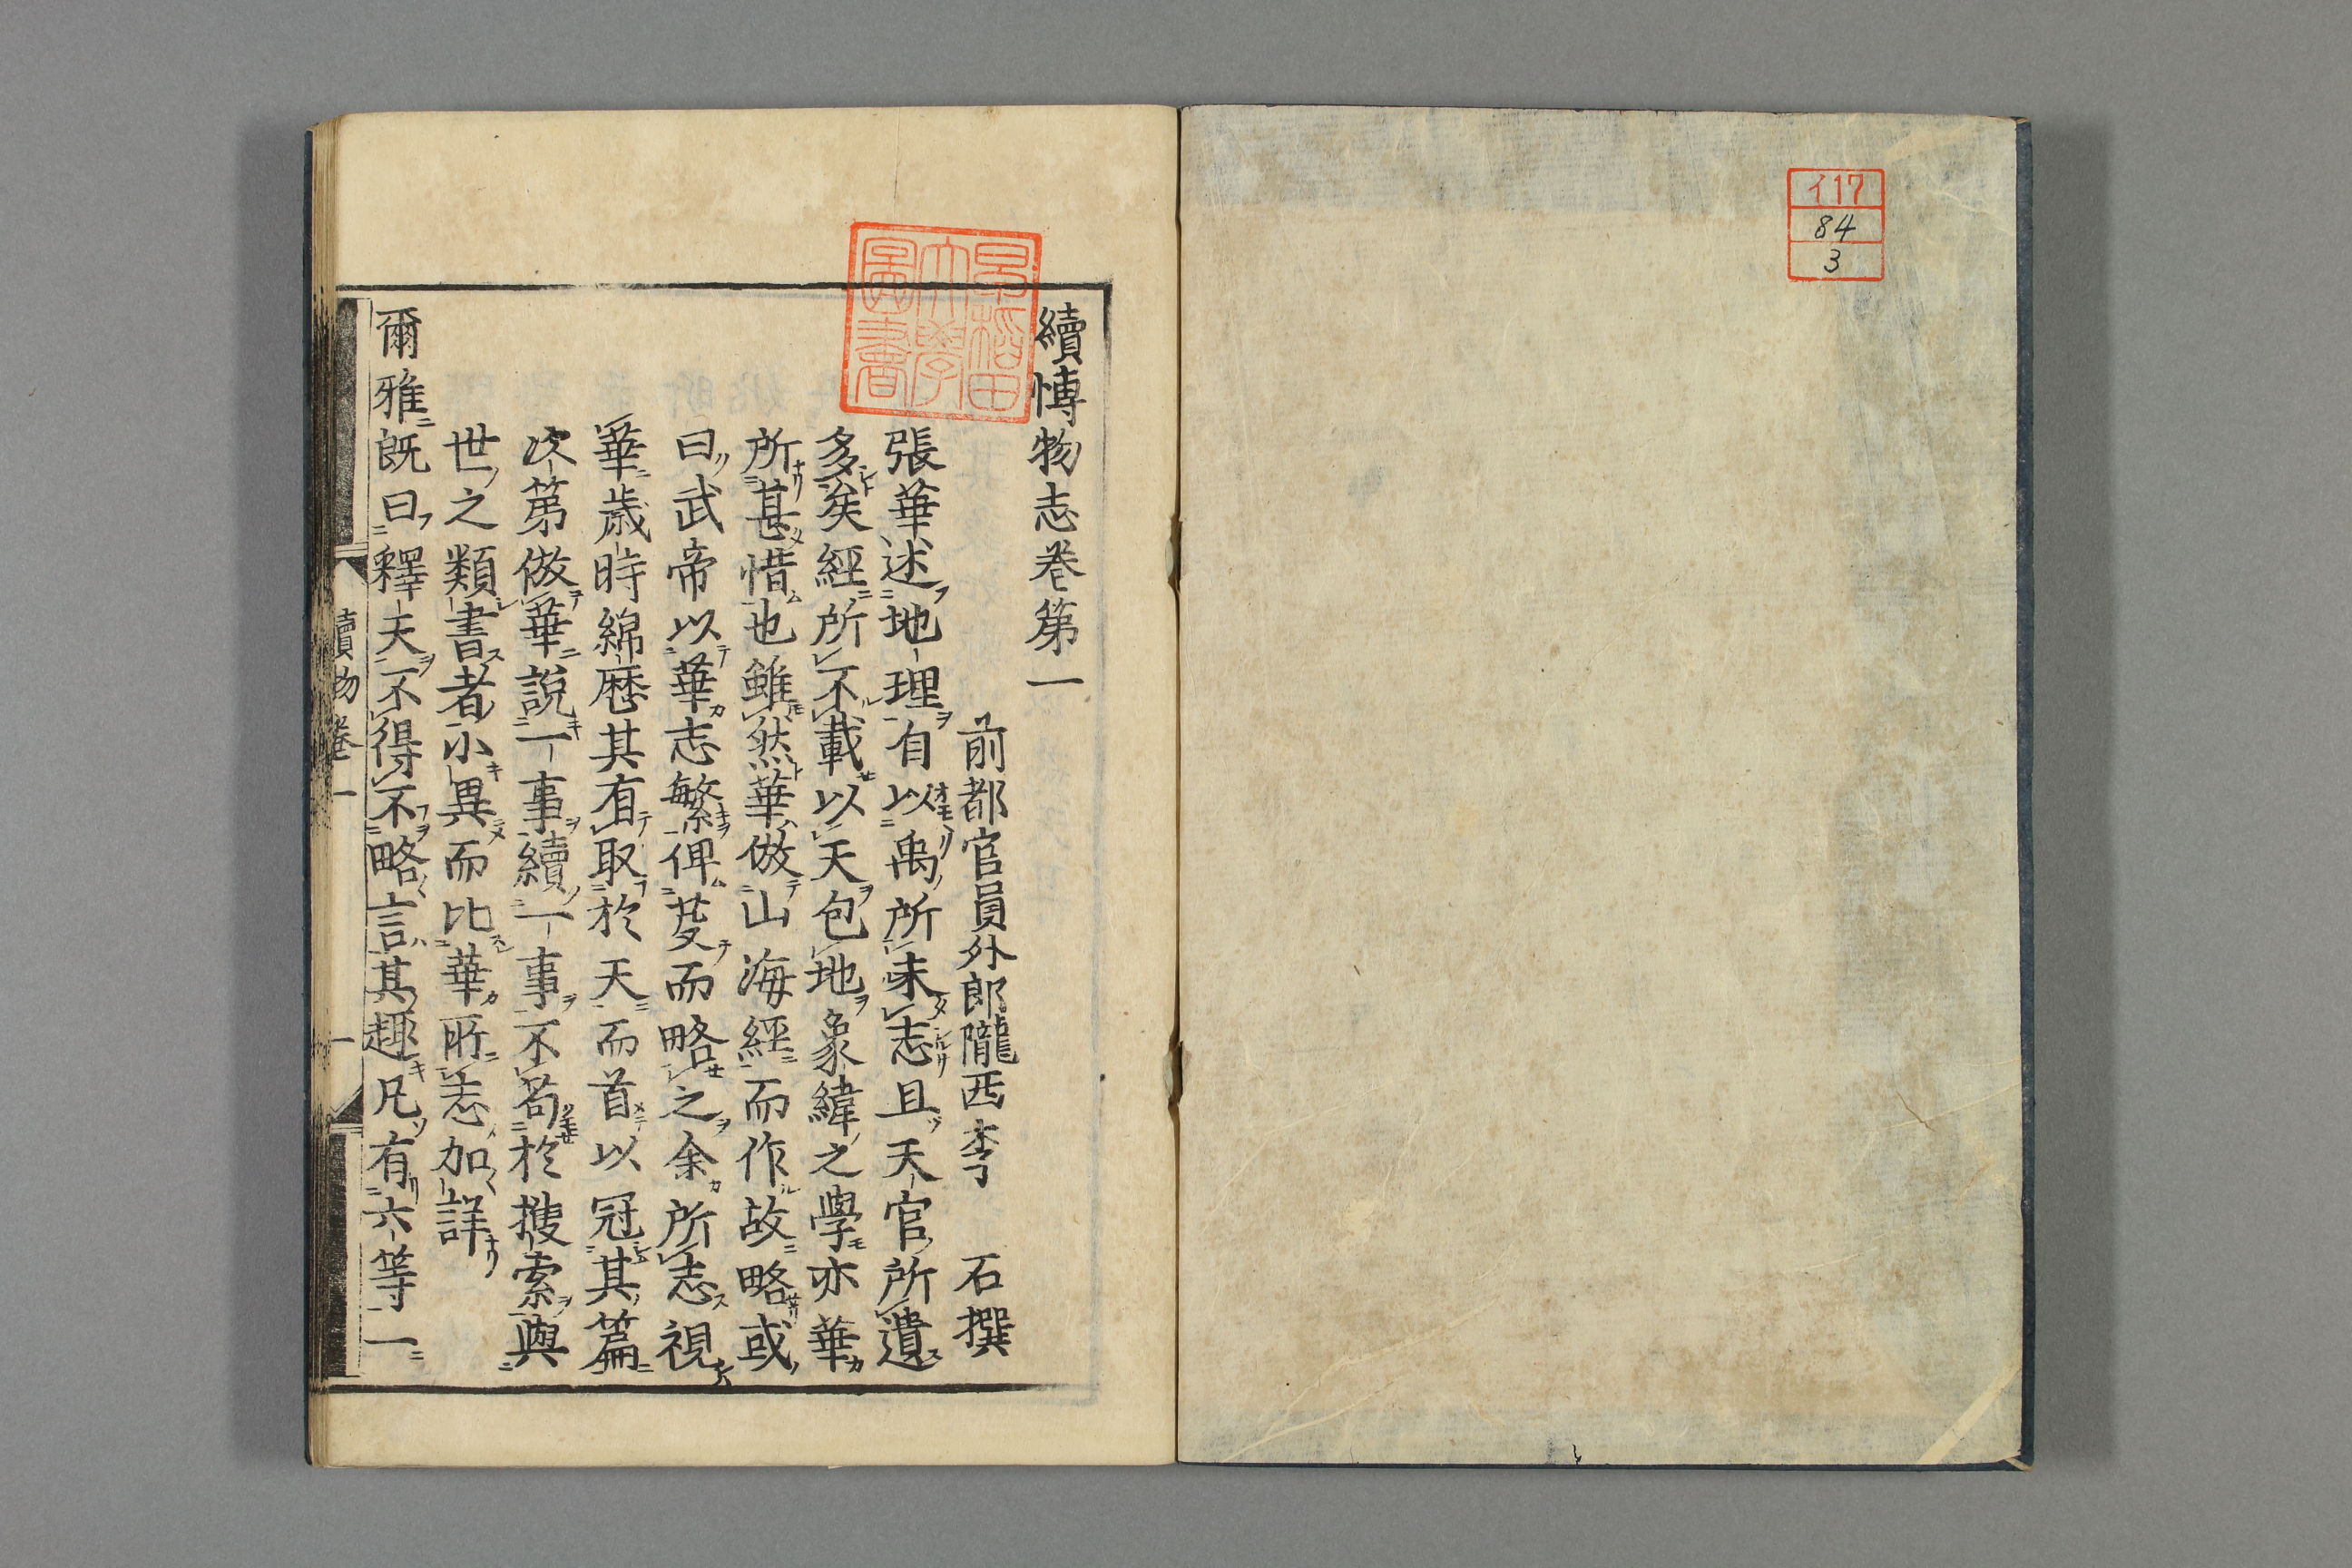 イ17
84
3
續愽物志卷第一
前都官員外郎隴西李 石撰
張華述地理自以禹所未志且天官所遺
多矣經所不載以天包地象緯之學亦華
所甚惜也雖然華倣山海經而作故略或
曰武帝以華志繁俾芟而略之余所志視
華歳時綿歴其有取於天而首以冠其篇
次第倣華說一事續一事不苟於搜索與
世之類書者小異而比華所志加詳
爾雅既曰釋天不得不略言其趣凡有六等一
續物卷一
一
早稻田
大學
圖書